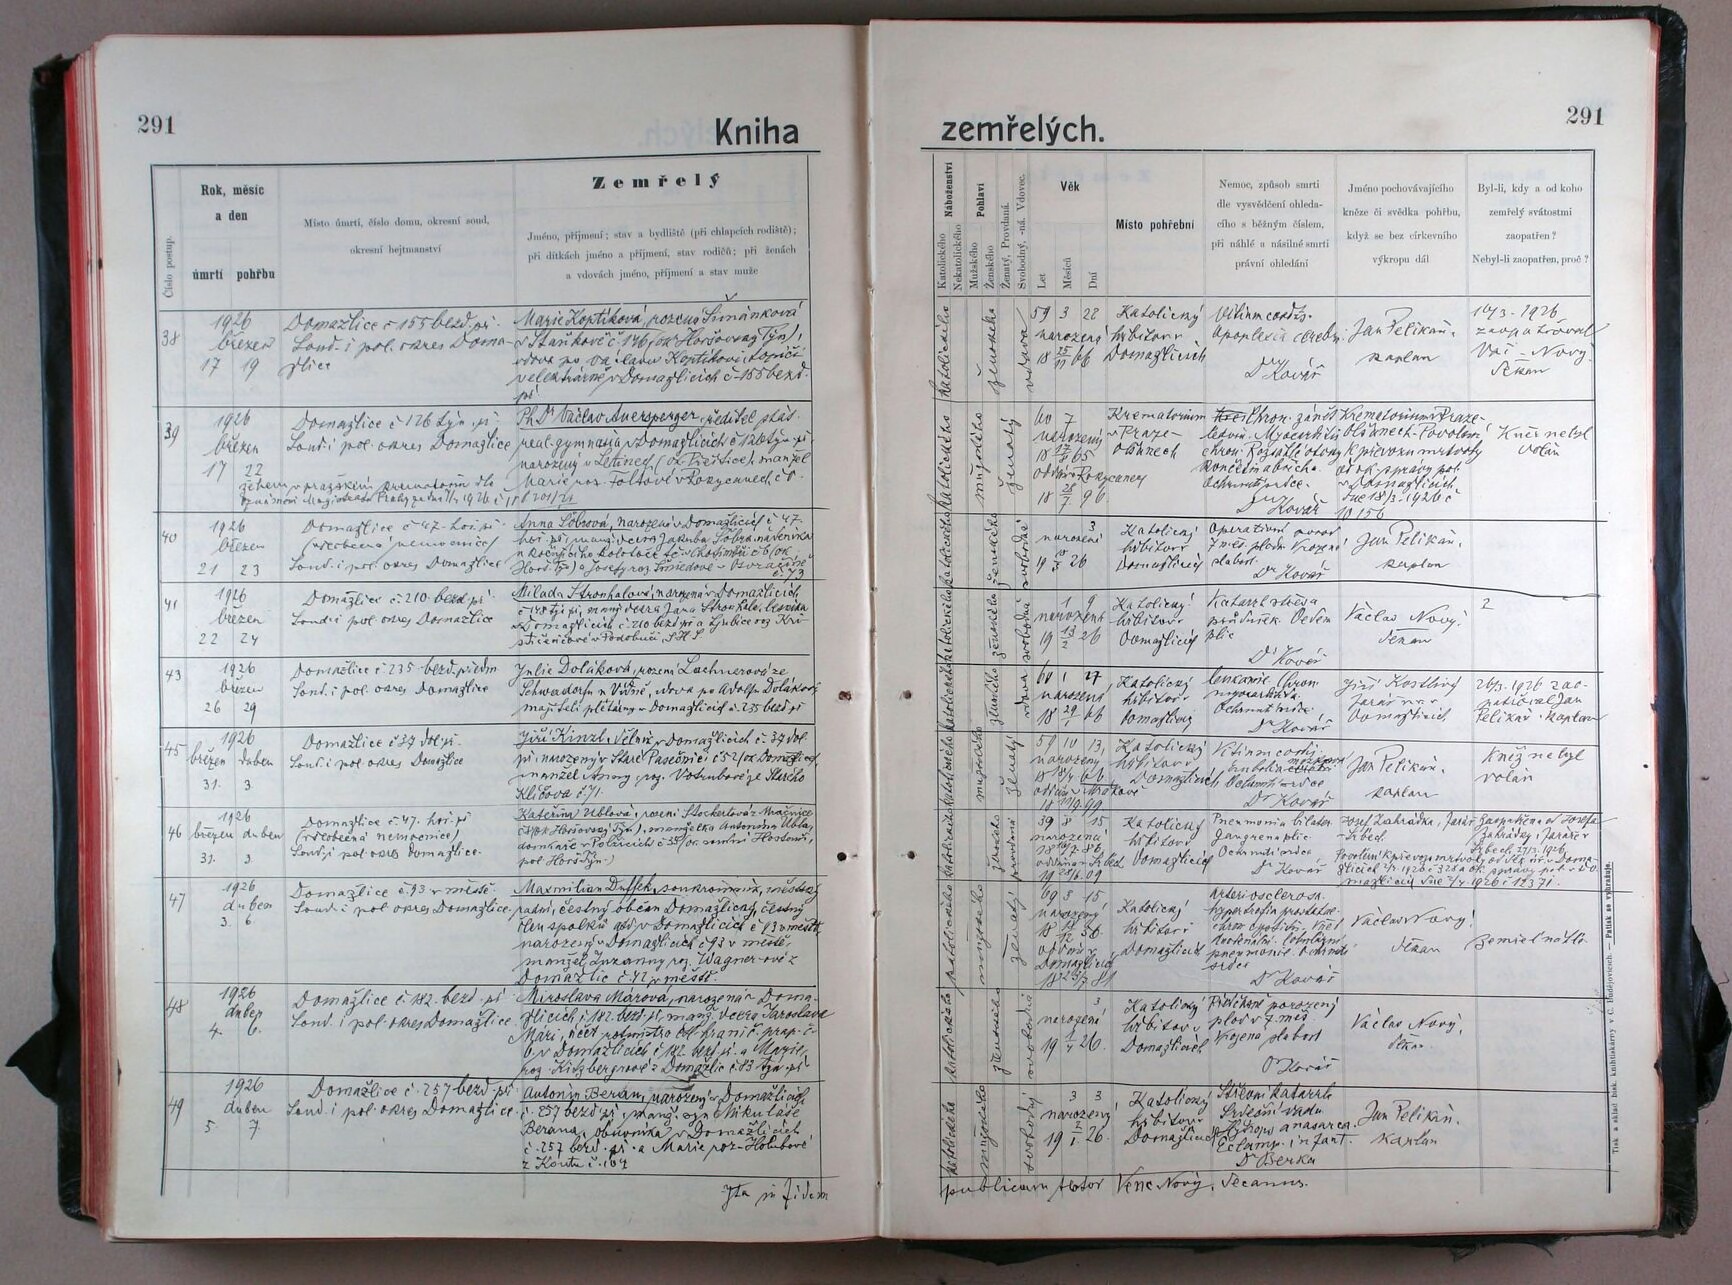 291
Kniha
zemřelých.
291
Číslo postup.
Rok, měsíc
a den
úmrtí pohřbu
Místo úmrtí, číslo domu, okresní soud,
okresní hejtmanství
Zemřelý
Jméno, příjmení; stav a bydliště (při chlapcích rodiště);
při dítkách jméno a příjmení, stav rodičů; při ženách
a vdovách jméno, příjmení a stav muže
Náboženství
Katolického
Nekatolického
Pohlaví
Mužského
Ženského
Ženatý, Provdaná.
Svobodný, -ná. Vdovec.
Věk
Let
Měsíců
Dní
Místo pohřební
Nemoc, způsob smrti
dle vysvědčení ohleda-
cího s běžným číslem,
při náhlé a násilné smrti
právní ohledání
Jméno pochovávajícího
kněze či svědka pohřbu,
když se bez církevního
výkropu dál
Byl-li, kdy a od koho
zemřelý svátostmi
zaopatřen?
Nebyl-li zaopatřen, proč?
38
1926
březen
17 19
Domažlice č 155 bezd. př.
Soud. i pol. okres Doma-
žlice
Marie Koptíková, rozená Šimánková
v Staňkově č 176 (ok Horšovský Týn),
vdova po Václavu Koptíkovi, topiči
v elektrárně v Domažlicích č 155 bezd.
př.
katolického
ženského
vdova
59 3 22
narozená
18 66
Katolický
hřbitov
Domažlicích
Vitium cordis.
Apoplexia cerebri.
Dr Kovář
Jan Pelikán.
kaplan
14/3 1926
zaopatřoval
Vác. Nový.
děkan
39
1926
březen
17 22
Domažlice č 126 týn. př.
Soud. i pol. okres Domažlice
Ph Dr Václav Auersperger, ředitel stát.
real. gymnasia v Domažlicích č 126 tý. př.
narozený v Letinech (ok Přeštice), manžel
Marie roz. v Rokycanech č
katolického
mužského
ženatý
60 7
narozený
18 65
oddán Rokycanech
18 96
Krematorium
v Praze-
Olšanech
Chron. zánět
ledvin. Myocarditis
chron.
Ochrnutí srdce.
Dr Kovář
Krematorium v Praze-
Olšanech. Povolení
k převozu mrtvoly
od ok. správy pol.
v Domažlicích
dne 18/3. 1926 č
10156
Kněz nebyl
volán
40
1926
březen
21 23
Domažlice č 47 hoř. př.
(všeobecná nemocnice)
Soud. i pol. okres Domažlice
Anna Löbrová, narozená v Domažlicích č 47.
hoř. př., manž. dcera Jakuba Löbra
č. 73
katolického
ženského
svobodná
3
narozená
19 26
Katolický
hřbitov
Domažlicích
Operativní porod
7 měs. plodu. Vrozená
slabost.
Dr Kovář
Jan Pelikán.
kaplan
41
1926
březen
22 24
Domažlice č. 210 bezd. př.
Soud. i pol. okres Domažlice
Milada Stronhalová, narozená v Domažlicích
v Domažlicích č. 210 bezd. př. a Ljubice roz.
katolického
ženského
svobodná
1 9
narozená
19 13/2 26
Katolický
hřbitov
Domažlicích
Katarrh střeva
průdušek. Oedem
plic
Dr Kovář
Václav Nový.
děkan
2
43
1926
březen
26 29
Domažlice č 235 bezd. předm
Soud. i pol. okres Domažlice
Julie Doláková, rozená Lachnerová ze
Schwadorfu u Vídně, vdova po Adolfu Dolákovi
majiteli pletárny v Domažlicích č. 235 bezd. př
katolického
ženského
vdova
60 1 27
narozená
18 29/1 66
Katolický
hřbitov
Domažlicích
Leukemie. Chron.
myocarditis.
Ochrnutí srdce.
Dr Kovář
Jiří Kostlivý
farář v. v.
Domažlicích
26/3. 1926 zao-
patřoval Jan
Pelikán. kaplan
45
1926
březen duben
31. 3.
Domažlice č 37 dol. př.
Soud. i pol. okres Domažlice
Jiří Kinzl, dělník v Domažlicích č. 37 dol.
př., narozený v Staré Pasečnici č 52 (ok Domažlice),
manžel Anny, roz. Votrubové ze Starého
Klíčova č. 71.
katolického
mužského
ženatý
59 10 13,
narozený
18 66
oddán v Mrákově
18 99
Katolický
hřbitov
Domažlicích
Vitium cordis.
Embolia
Ochrnutí srdce
Dr Kovář
Jan Pelikán.
kaplan
Kněž nebyl
volán
46
1926
březen duben
31. 3.
Domažlice č. 47. hoř. př
(všeobecná nemocnice)
Soud. i pol. okres Domažlice.
Kateřina Ublová, rozená Stockertová z Mračnice
(ok Horšovský Týn), manželka Antonína Ubla,
domkáře v Polžicích č 55 (ok. soudní Hostouň,
pol Horš. Týn.)
katolického
ženského
provdaná
39 8 15
narozená
18 86
19 09
Katolický
hřbitov
Domažlicích
Pneumonia bilater.
Gangrena plic
Ochrnutí srdce
Dr Kovář
Josef Zahrádka, farář
v Srbech.
Zaopatřena od Josefa
Zahrádky, faráře v
Srbech 27/3. 1926.
47
1926
duben
3. 6
Domažlice č. 93 v městě.
Soud. i pol. okres Domažlice.
Maxmilian Duffek, soukromník, městský
radní, čestný občan Domažlický, čestný
člen spolků atd v Domažlicích č 93 v městě,
narozený v Domažlicích č 93 v městě,
manžel Zuzanny roz. Wagner-ové z
Domažlic č 42 v městě.
katolického
mužského
ženatý
69 3 15
narozený
18 56
oddán v
Domažlicích
18 81
Katolický
hřbitov
Domažlicích
Arteriosclerosa.
hypertrofia prostatae.
pneumonie. Ochrnutí
srdce
Dr Kovář
Václav Nový.
děkan
Zemřel náhle.
48
1926
duben
4. 6.
Domažlice č. 182. bezd. př
Soud. i pol. okres Domažlice.
Miroslava Márová, narozená v Doma-
žlicích č 182. bezd. př, manž. dcera Jaroslava
6. v Domažlicích č 182. bezd. př. a Marie,
roz. Kitzbergrové z Domažlic č 83 týn. př.
katolického
ženského
svobodná
3
narozená
19 1/4 26.
Katolický
hřbitov
Domažlicích
Předčasně porozený
plod v 7. měs.
Vrozená slabost
Dr Kovář
Václav Nový.
děkan.
49
1926
duben
5. 7
Domažlice č. 257 bezd. př
Soud. i pol. okres Domažlice
Antonín Beran, narozený v Domažlicích
č. 257 bezd. př., manž. syn Mikuláše
Berana, obuvníka v Domažlicích
č. 257 bezd. př. a Marie roz. Holubové
z Koutu č. 164
katolického
mužského
svobodný
3 3
narozený
19 2/1 26.
Katolický
hřbitov
Domažlicích
Střevní katarrh
Srdeční vada
Hydrops anasarca.
Eclamp. infant.
Dr Berka
Jan Pelikán.
kaplan
Ita in fidem
publicam testor Venc Nový, decanus.
Tisk a sklad bisk. knihtiskárny v Č. Budějovicích. — Patisk se vyhražuje.